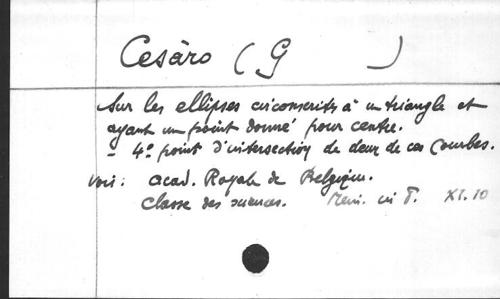 Cesàro (G )
Sur les ellipses circonscrites à un triangle et
ayant un point donné pour centre.
- 4e point d'intersection de deux de ces courbes.
voir: acad. Royale de Belgique.
Classe des sciences. Mem. in 8. XI. 10